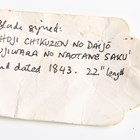 Blade signed:
"HOJI CHIKUZEN NO DAIJŌ
FUJIWARA NO NAOTANE SAKU"
and dated 1843. 22" length